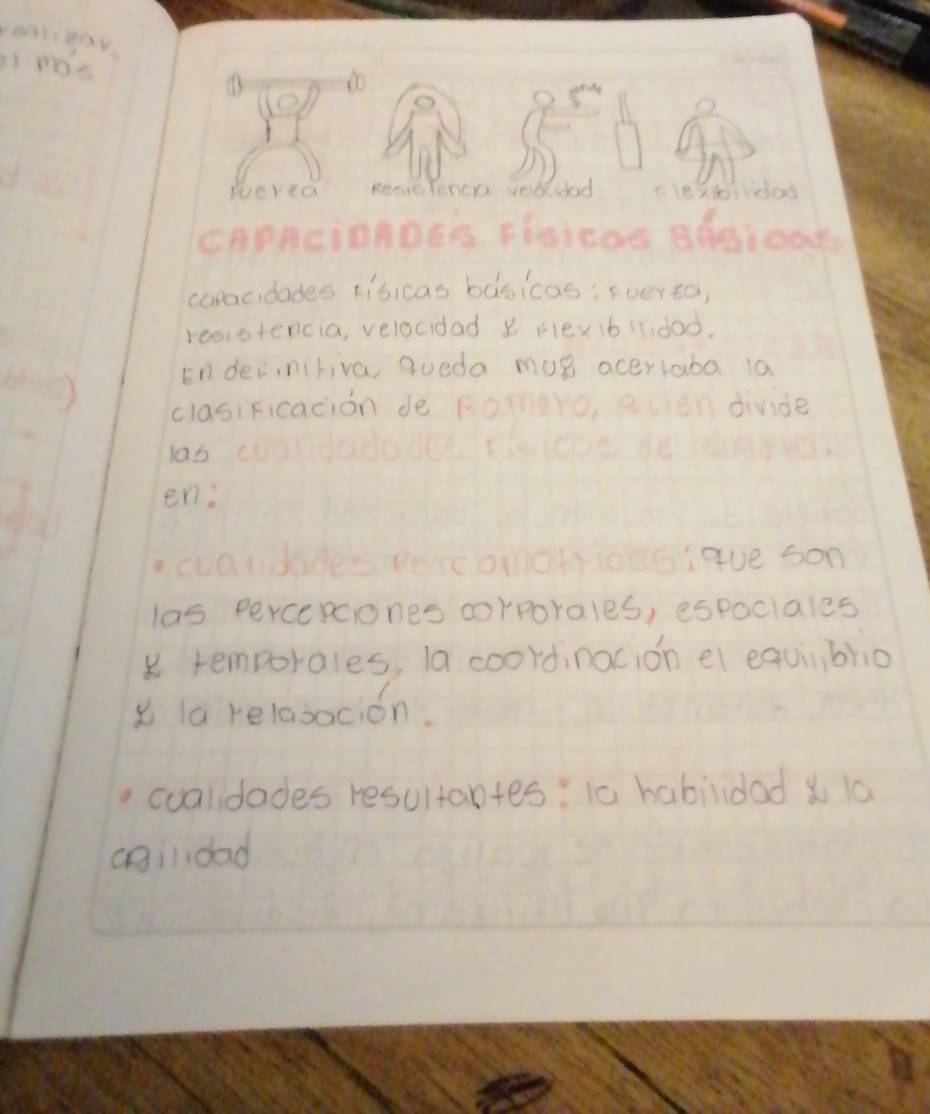 realizar
más
Fuerza Resistencia velocidad Flexibilidad
CAPACIDADES Físicas BÁSicas
capacidades físicas básicas: fuerza,
resistencia, velocidad y flexibilidad.
En definitiva, queda muy acertaba la
clasificación de Romero, quien divide
las cualidadades físicas de
en:
• cualidades percomotrices: que son
las percepciones corporales, espaciales
y temporales, la coordinación el equilibrio
y la relajación.
• cualidades resultantes: la habilidad y la
agilidad